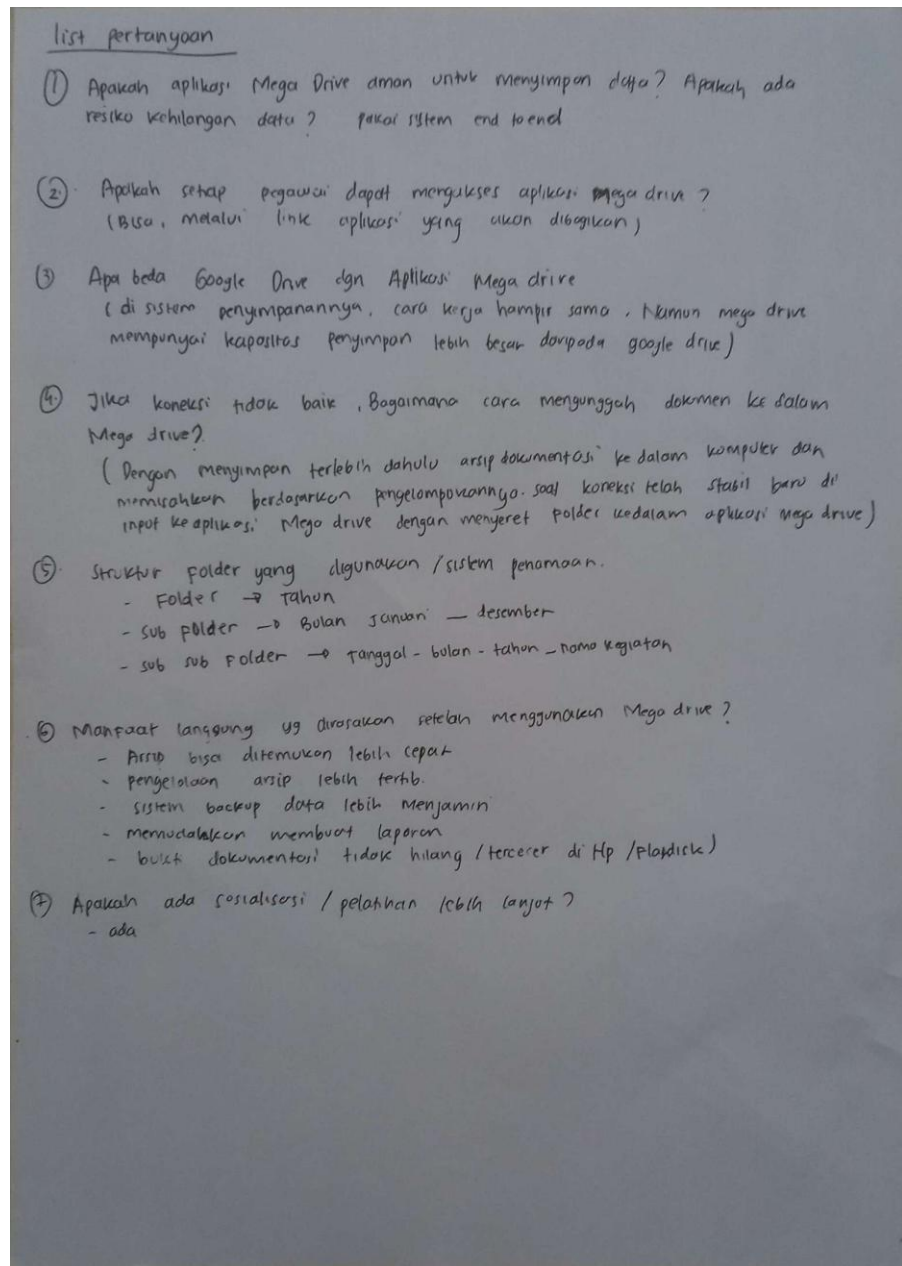 list pertanyaan
① Apakah aplikasi Mega Drive aman untuk menyimpan data? Apakah ada
resiko kehilangan data? pakai system end to end
②. Apakah setiap pegawai dapat mengakses aplikasi mega drive?
(Bisa, melalui link aplikasi yang akan dibagikan)
③ Apa beda Google Drive dgn Aplikasi Mega drive
(di sistem penyimpanannya, cara kerja hampir sama, Namun mega drive
mempunyai kapasitas penyimpan lebih besar daripada google drive)
④. Jika koneksi tidak baik, Bagaimana cara mengunggah dokmen ke dalam
Mega drive?
(Dengan menyimpan terlebih dahulu arsip dokumentasi ke dalam komputer dan
memisahkan berdasarkan pengelompokannya. saat koneksi telah stabil baru di
input ke aplikasi Mega drive dengan menyeret polder kedalam aplikasi mega drive)
⑤. Struktur Folder yang digunakan / sistem penamaan.
- Folder → Tahun
- sub polder → Bulan Januari — desember
- sub sub Folder → Tanggal - bulan - tahun _ nama kegiatan
⑥ Manfaat langsung yg dirasakan setelah menggunakan Mega drive?
- Arsip bisa ditemukan lebih cepat
- pengelolaan arsip lebih tertib.
- sistem backup data lebih menjamin
- memudahkan membuat laporan
- bukti dokumentasi tidak hilang / tercecer di Hp / Plasdisk)
⑦ Apakah ada sosialisasi / pelatihan lebih lanjut?
- ada